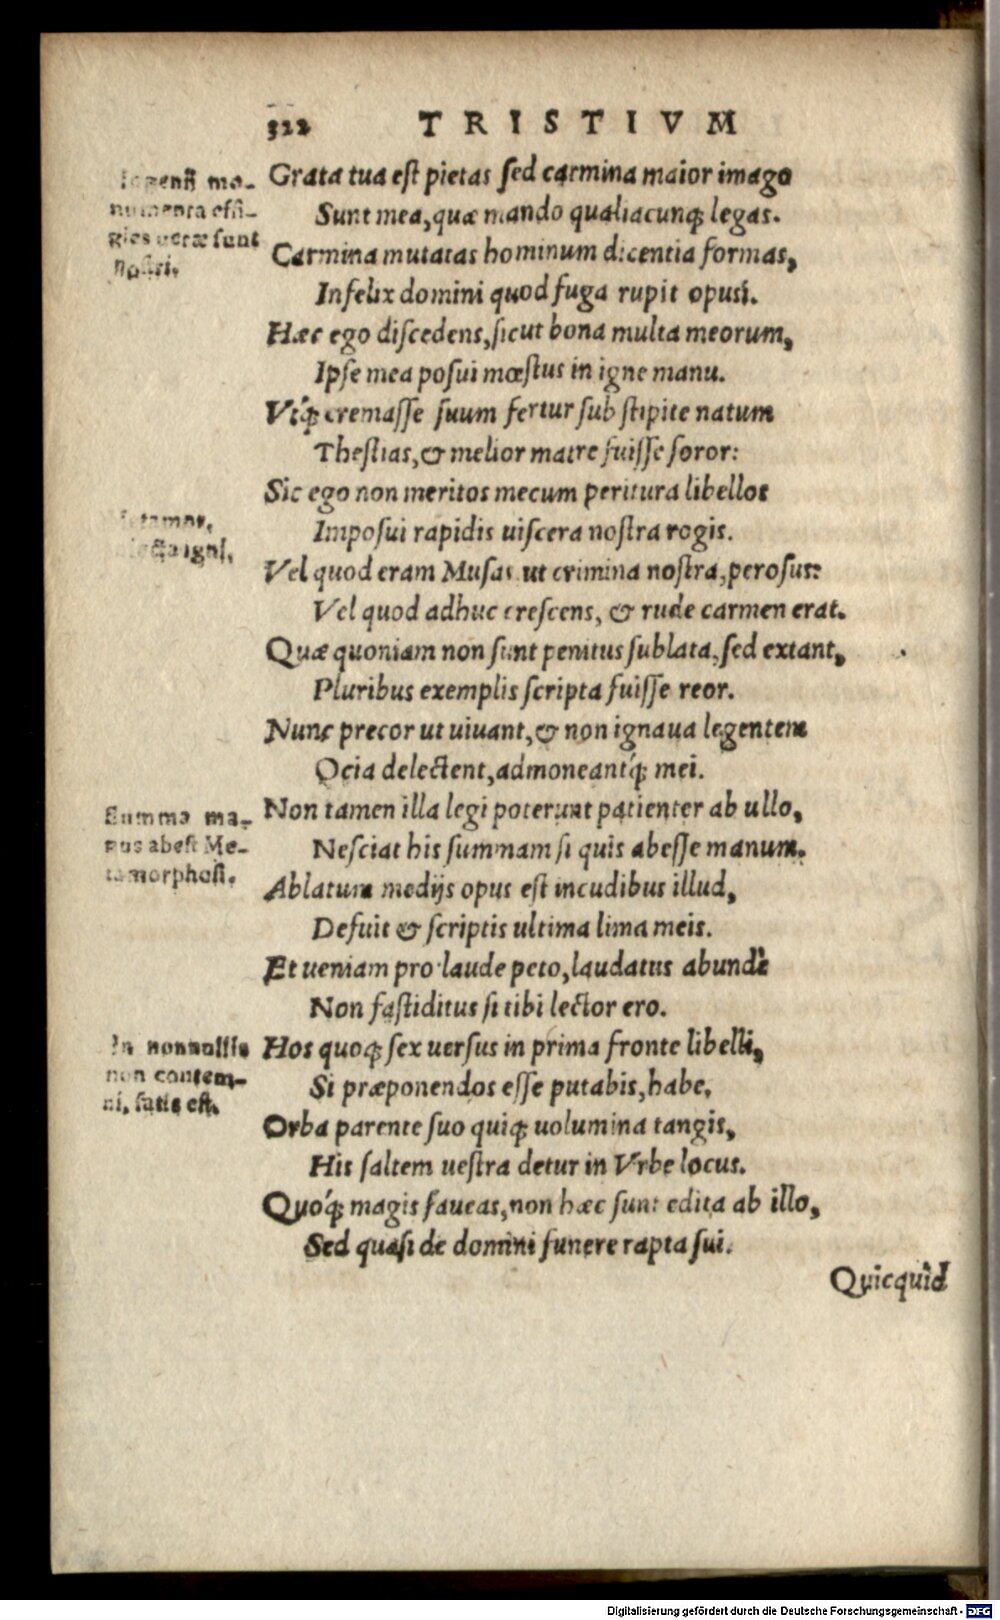 322 TRISTIVM
Ingenii mo-
numenta effi-
gies ueræ sunt
nostri.
Grata tua est pietas sed carmina maior imago
Sunt mea, quæ mando qualiacunq; legas.
Carmina mutatas hominum dicentia formas,
Infelix domini quod fuga rupit opus.
Hæc ego discedens, sicut bona multa meorum,
Ipse mea posui mœstus in igne manu.
Vtq́; cremasse suum fertur sub stipite natum
Thestias, & melior matre fuisse soror:
Sic ego non meritos mecum peritura libellos
Imposui rapidis uiscera nostra rogis.
igni.
Vel quod eram Musas ut crimina nostra, perosus:
Vel quod adhuc crescens, & rude carmen erat.
Quæ quoniam non sunt penitus sublata, sed extant,
Pluribus exemplis scripta fuisse reor.
Nunc precor ut uiuant, & non ignaua legentem
Ocia delectent, admoneantq́; mei.
Summa ma-
nus abest Me-
tamorphosi.
Non tamen illa legi poterunt patienter ab ullo,
Nesciat his summam si quis abesse manum.
Ablatum medijs opus est incudibus illud,
Defuit & scriptis ultima lima meis.
Et ueniam pro laude peto, laudatus abundè
Non fastiditus si tibi lector ero.
In nonnullis
non contem-
ni, satis est.
Hos quoq; sex uersus in prima fronte libelli,
Si præponendos esse putabis, habe.
Orba parente suo quiq; uolumina tangis,
His saltem uestra detur in Vrbe locus.
Quóq; magis faueas, non hæc sunt edita ab illo,
Sed quasi de domini funere rapta sui.
Quicquid
Digitalisierung gefördert durch die Deutsche Forschungsgemeinschaft - DFG